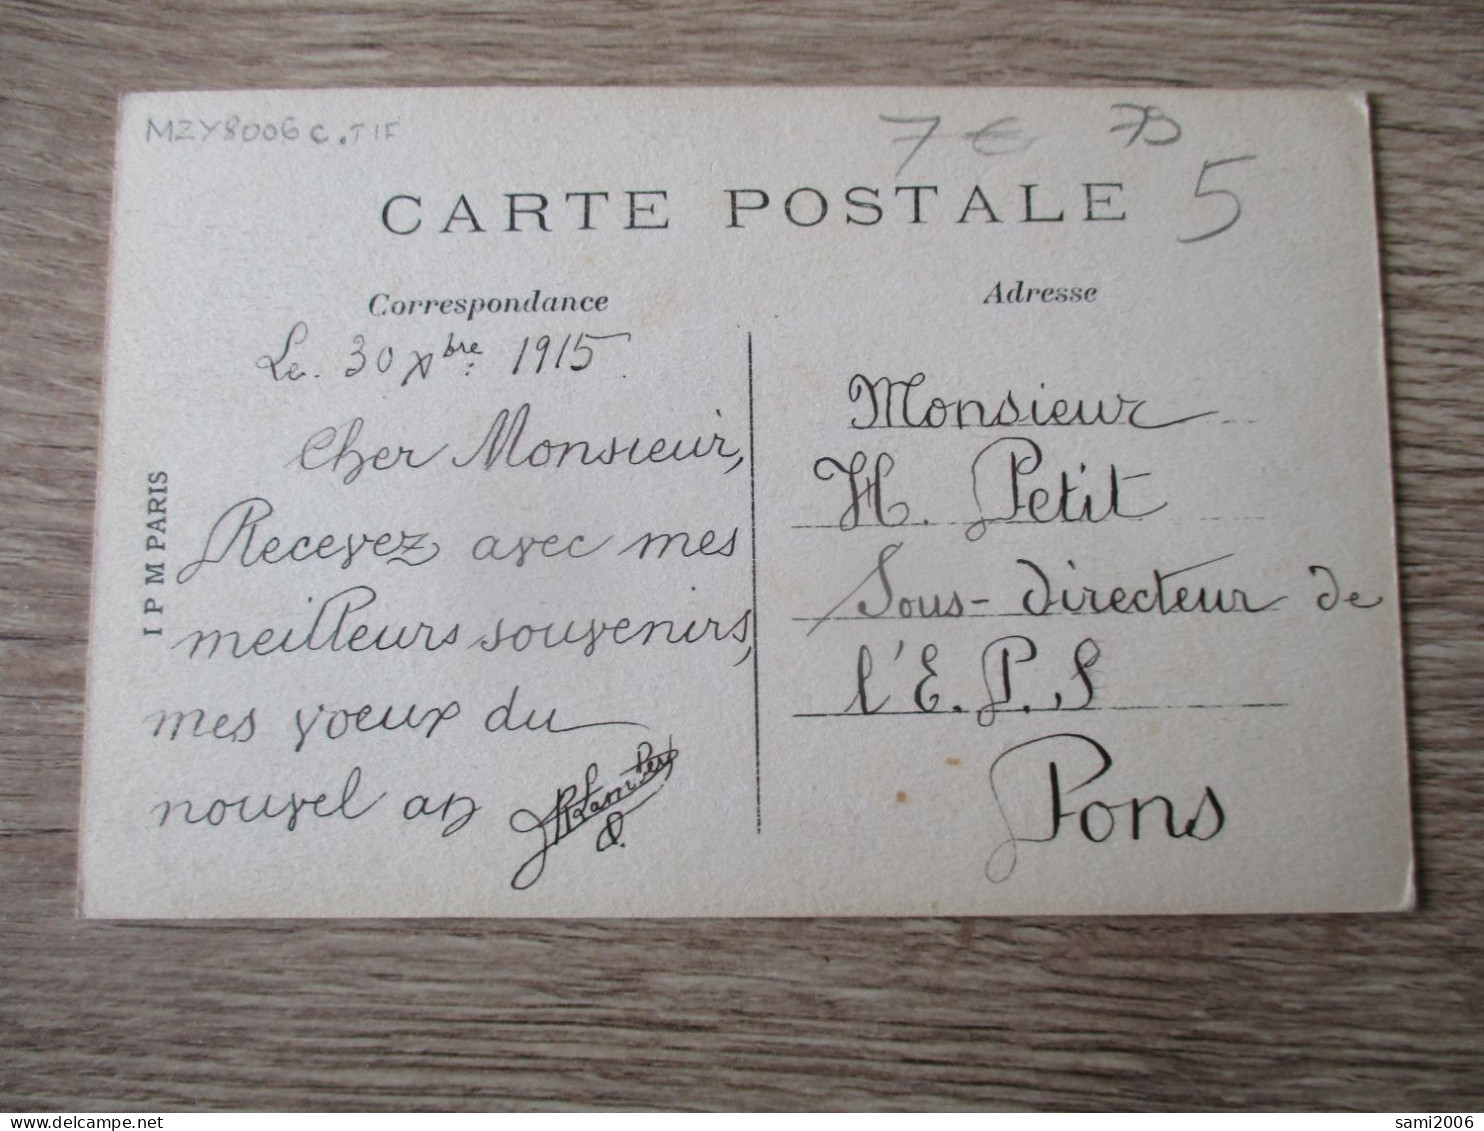 MZY8006c.TIF
7 €
5
CARTE POSTALE
Correspondance
Adresse
I P M PARIS
Le. 30 Xbre: 1915
Cher Monsieur,
Recevez avec mes
meilleurs souvenirs,
mes voeux du
nouvel an
Monsieur
H. Petit
Sous-directeur de
l'E.P.S
Pons
sami2006